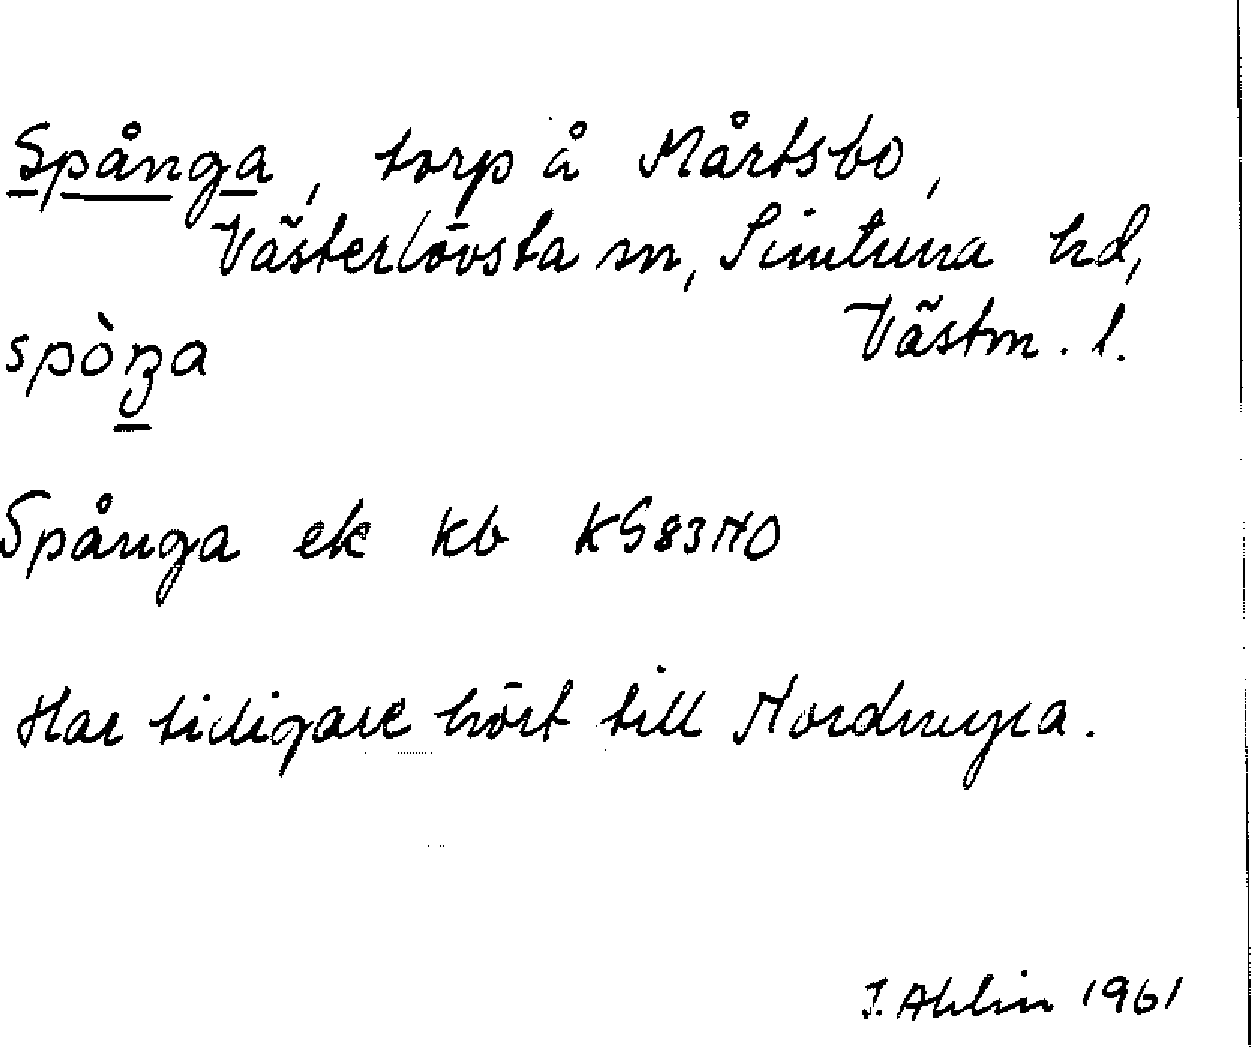 Spånga, torp å Mårtsbo,
Västerlövsta sn, Simtuna hd,
Västm. l.
spòŋa
Spånga ek kb KS83NO
Har tidigare hört till Nordmyra.
J. Ahlin 1961